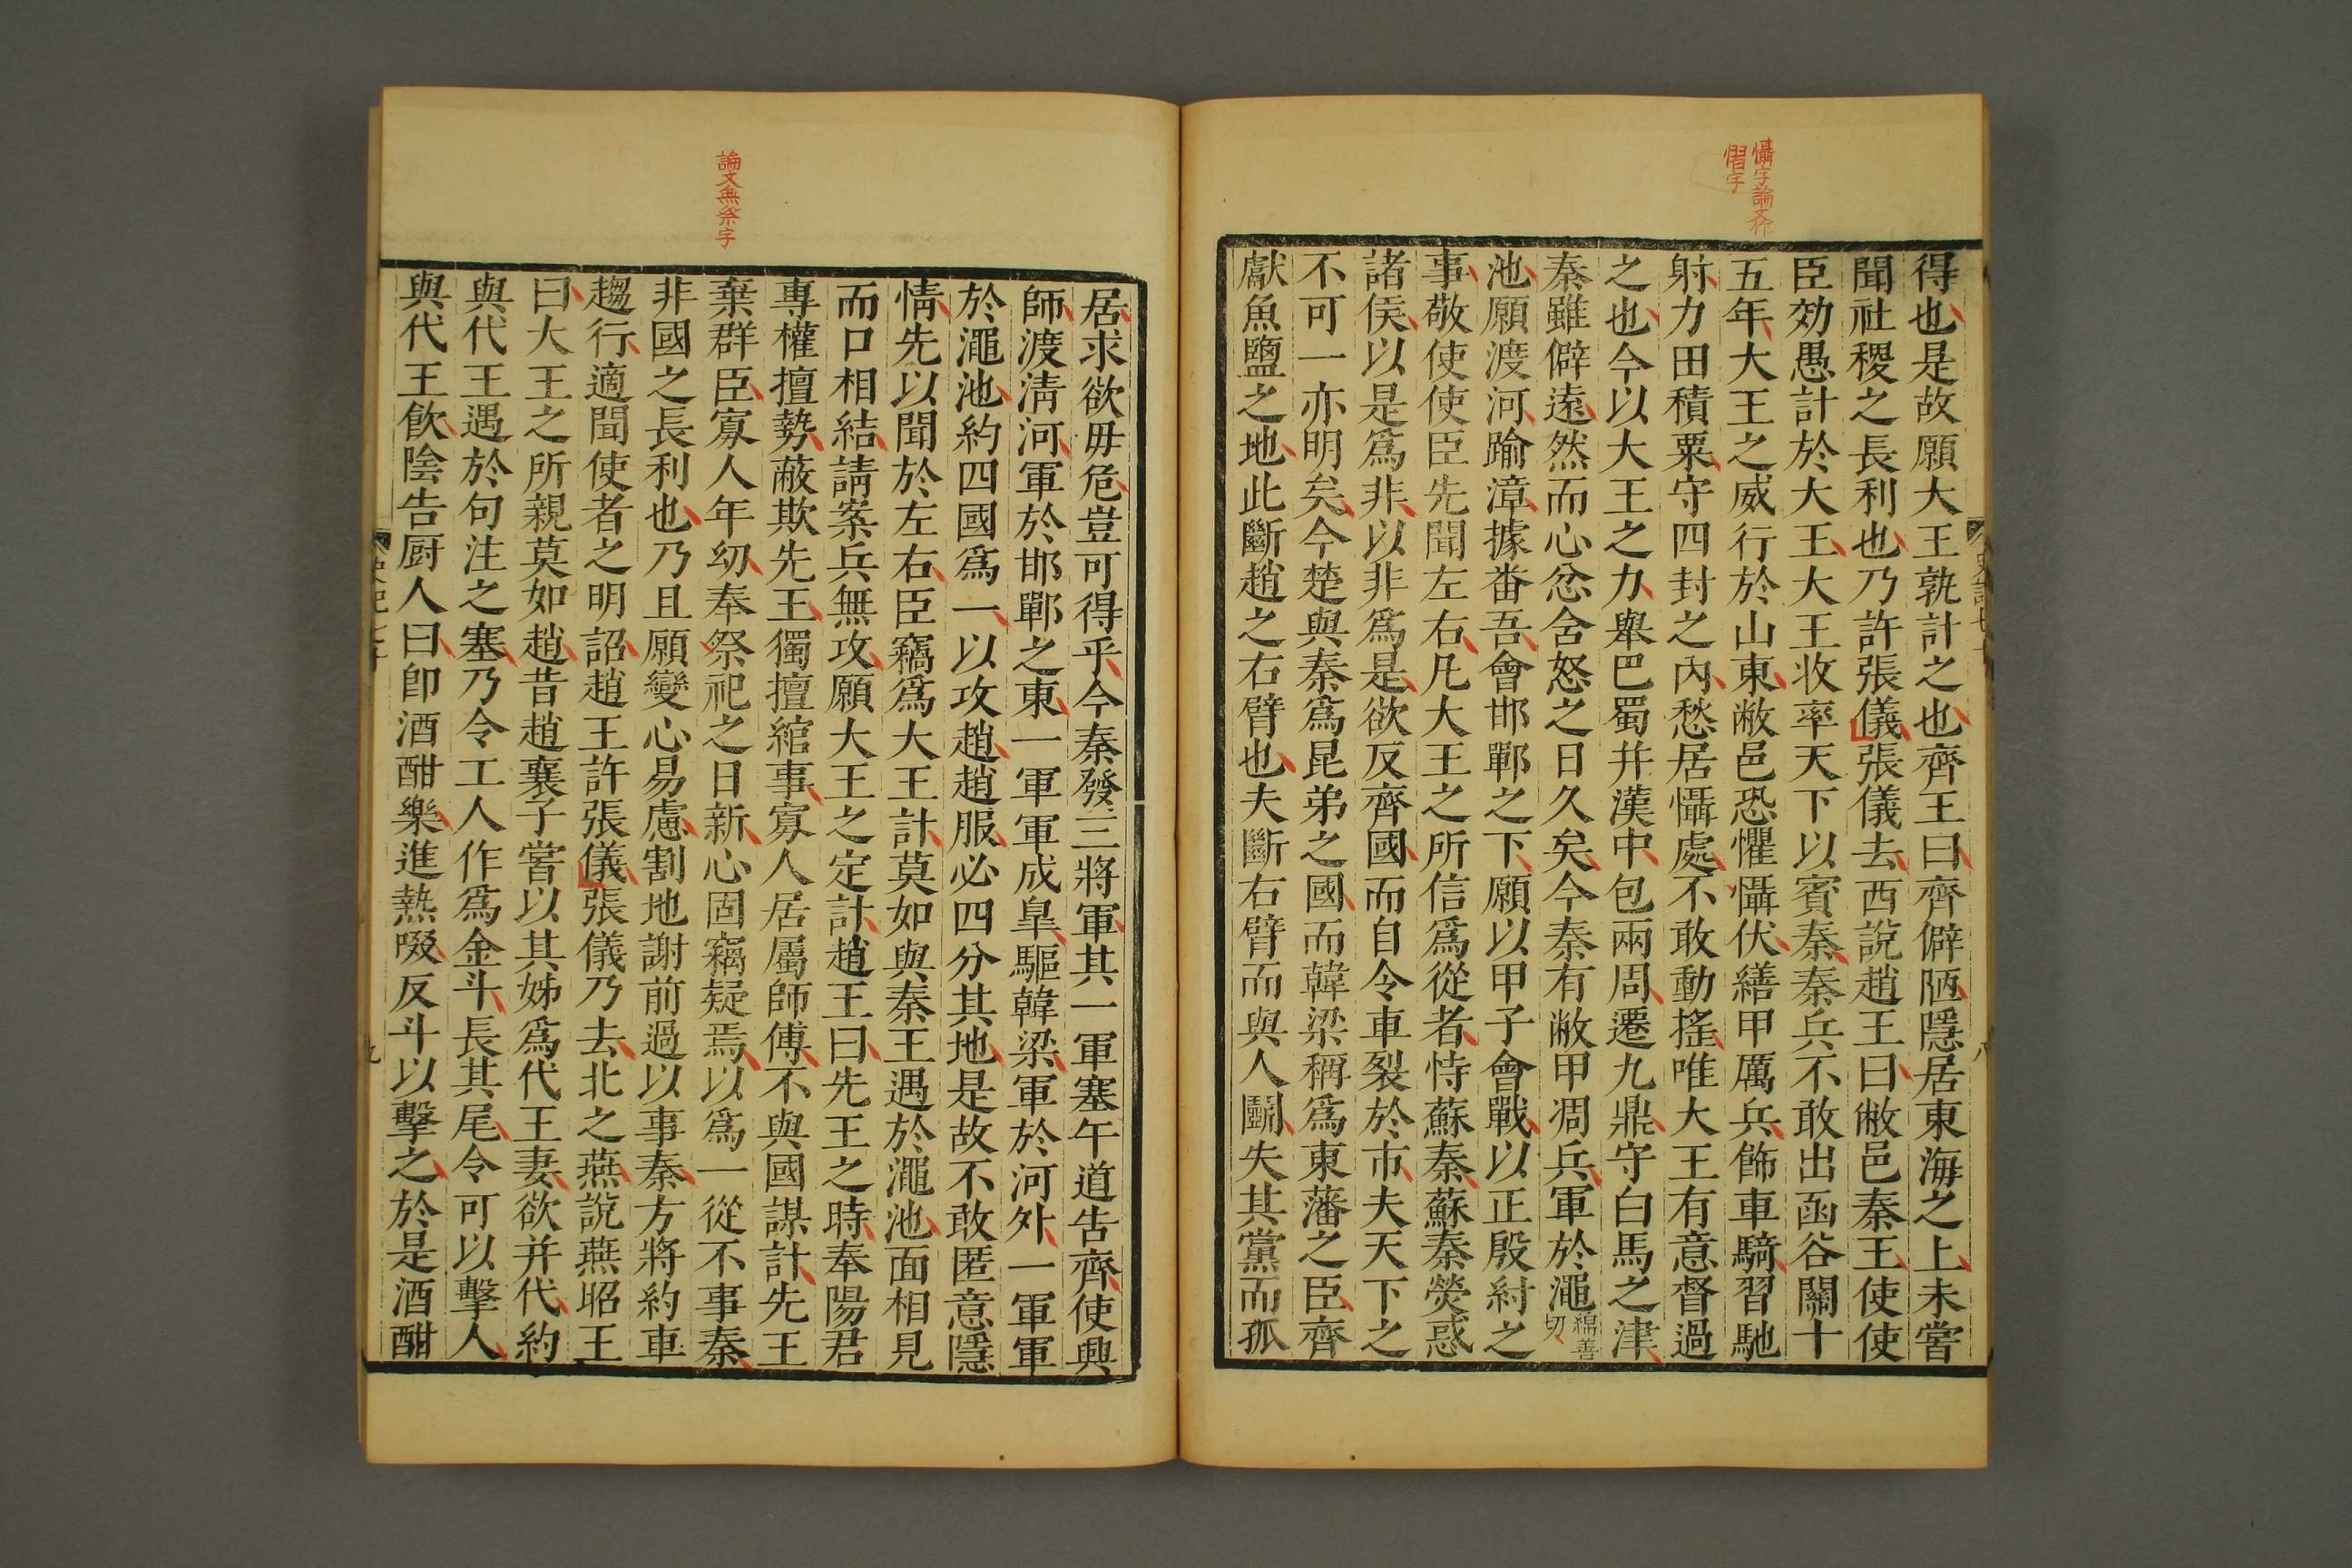 懾字論文作
慴字
得也是故願大王孰計之也齊王曰齊僻陋隱居東海之上未嘗
聞社稷之長利也乃許張儀張儀去西說趙王曰敝邑秦王使使
臣効愚計於大王大王收率天下以賓秦秦兵不敢出函谷關十
五年大王之威行於山東敝邑恐懼懾伏繕甲厲兵飾車騎習馳
射力田積粟守四封之內愁居懾處不敢動搖唯大王有意督過
之也今以大王之力舉巴蜀幷漢中包兩周遷九鼎守白馬之津
秦雖僻遠然而心忿含怒之日久矣今秦有敝甲凋兵軍於澠綿善切
池願渡河踰漳據番吾會邯鄲之下願以甲子會戰以正殷紂之
事敬使使臣先聞左右凡大王之所信爲從者恃蘇秦蘇秦熒惑
諸侯以是爲非以非爲是欲反齊國而自令車裂於市夫天下之
不可一亦明矣今楚與秦爲昆弟之國而韓梁稱爲東藩之臣齊
獻魚鹽之地此斷趙之右臂也夫斷右臂而與人鬭失其黨而孤
史記七十
八
論文無祭字
居求欲毋危豈可得乎今秦發三將軍其一軍塞午道告齊使興
師渡淸河軍於邯鄲之東一軍軍成臯驅韓梁軍於河外一軍軍
於澠池約四國爲一以攻趙趙服必四分其地是故不敢匿意隱
情先以聞於左右臣竊爲大王計莫如與秦王遇於澠池面相見
而口相結請案兵無攻願大王之定計趙王曰先王之時奉陽君
專權擅勢蔽欺先王獨擅綰事寡人居屬師傅不與國謀計先王
棄群臣寡人年幼奉祭祀之日新心固竊疑焉以爲一從不事秦
非國之長利也乃且願變心易慮割地謝前過以事秦方將約車
趨行適聞使者之明詔趙王許張儀張儀乃去北之燕說燕昭王
曰大王之所親莫如趙昔趙襄子嘗以其姊爲代王妻欲幷代約
與代王遇於句注之塞乃令工人作爲金斗長其尾令可以擊人
與代王飲陰告厨人曰卽酒酣樂進熱啜反斗以擊之於是酒酣
史記七十
九